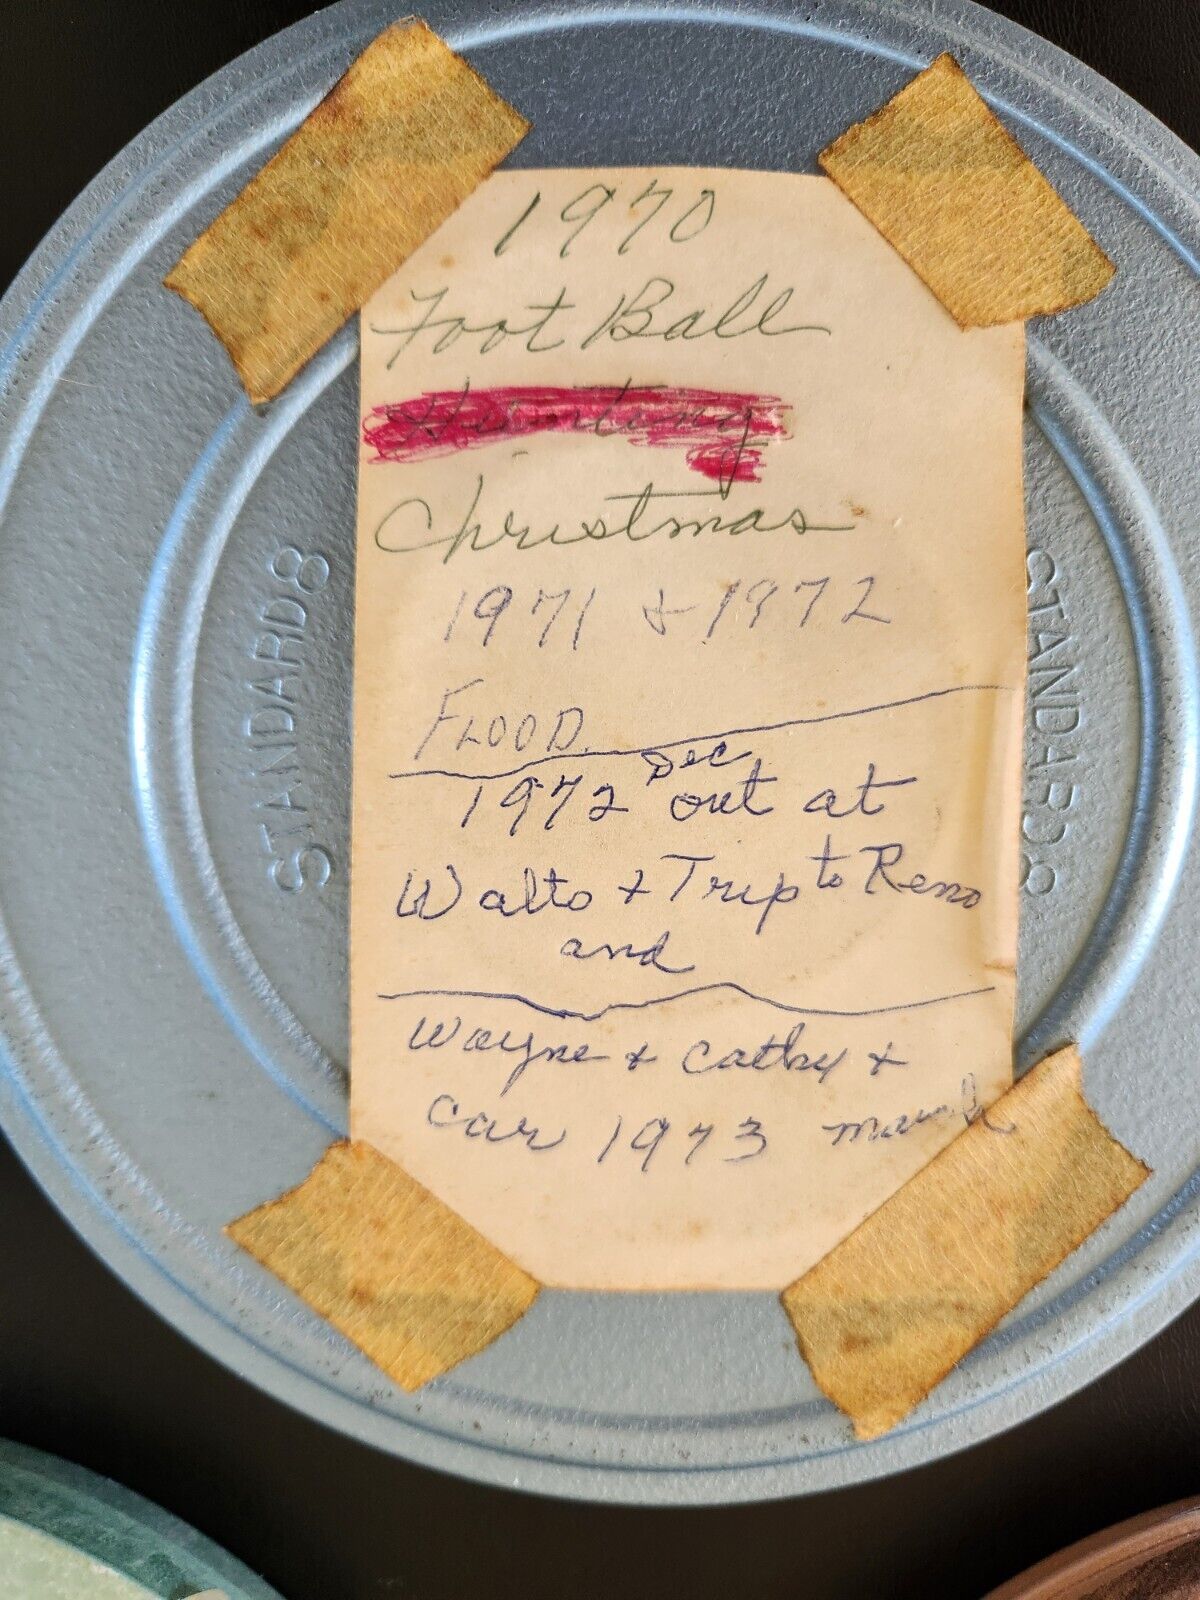 1970
Foot Ball
Hunting
Christmas
1971 & 1972
FLOOD.
1972 Dec out at
Walts + Trip to Reno
and
Wayne + Cathy +
Car 1973 March
STANDARD 8
STANDARD 8